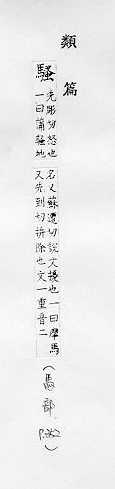 類篇
騷
先彫切愁也
一曰蕭騷地
名又蘇遭切說文擾也一曰摩馬
又先到切拚除也文一重音二
(馬部